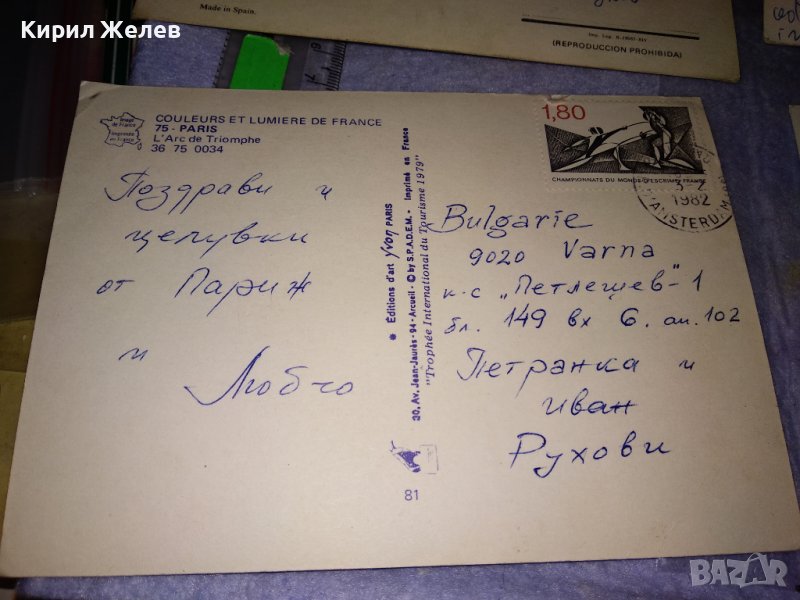 Кирил Желев
Made in Spain.
(REPRODUCCION PROHIBIDA)
Image de France
Imprimée en France
COULEURS ET LUMIERE DE FRANCE
75 - PARIS
L'Arc de Triomphe
36 75 0034
Поздрави и
целувки
от Париж
и
Любчо
* Editions d'art yvon PARIS
30, Av. Jean-Jaurès - 94 - Arcueil - © by S.P.A.D.E.M. - Imprimé en France
"Trophée International du Tourisme 1979"
81
1,80
CHAMPIONNATS DU MONDE D'ESCRIME
1982
AMSTERDAM
Bulgarie
9020 Varna
к-с "Петлешев"-1
бл. 149 вх 6. ап. 102
Петранка и
Иван
Рухови
BAZAR